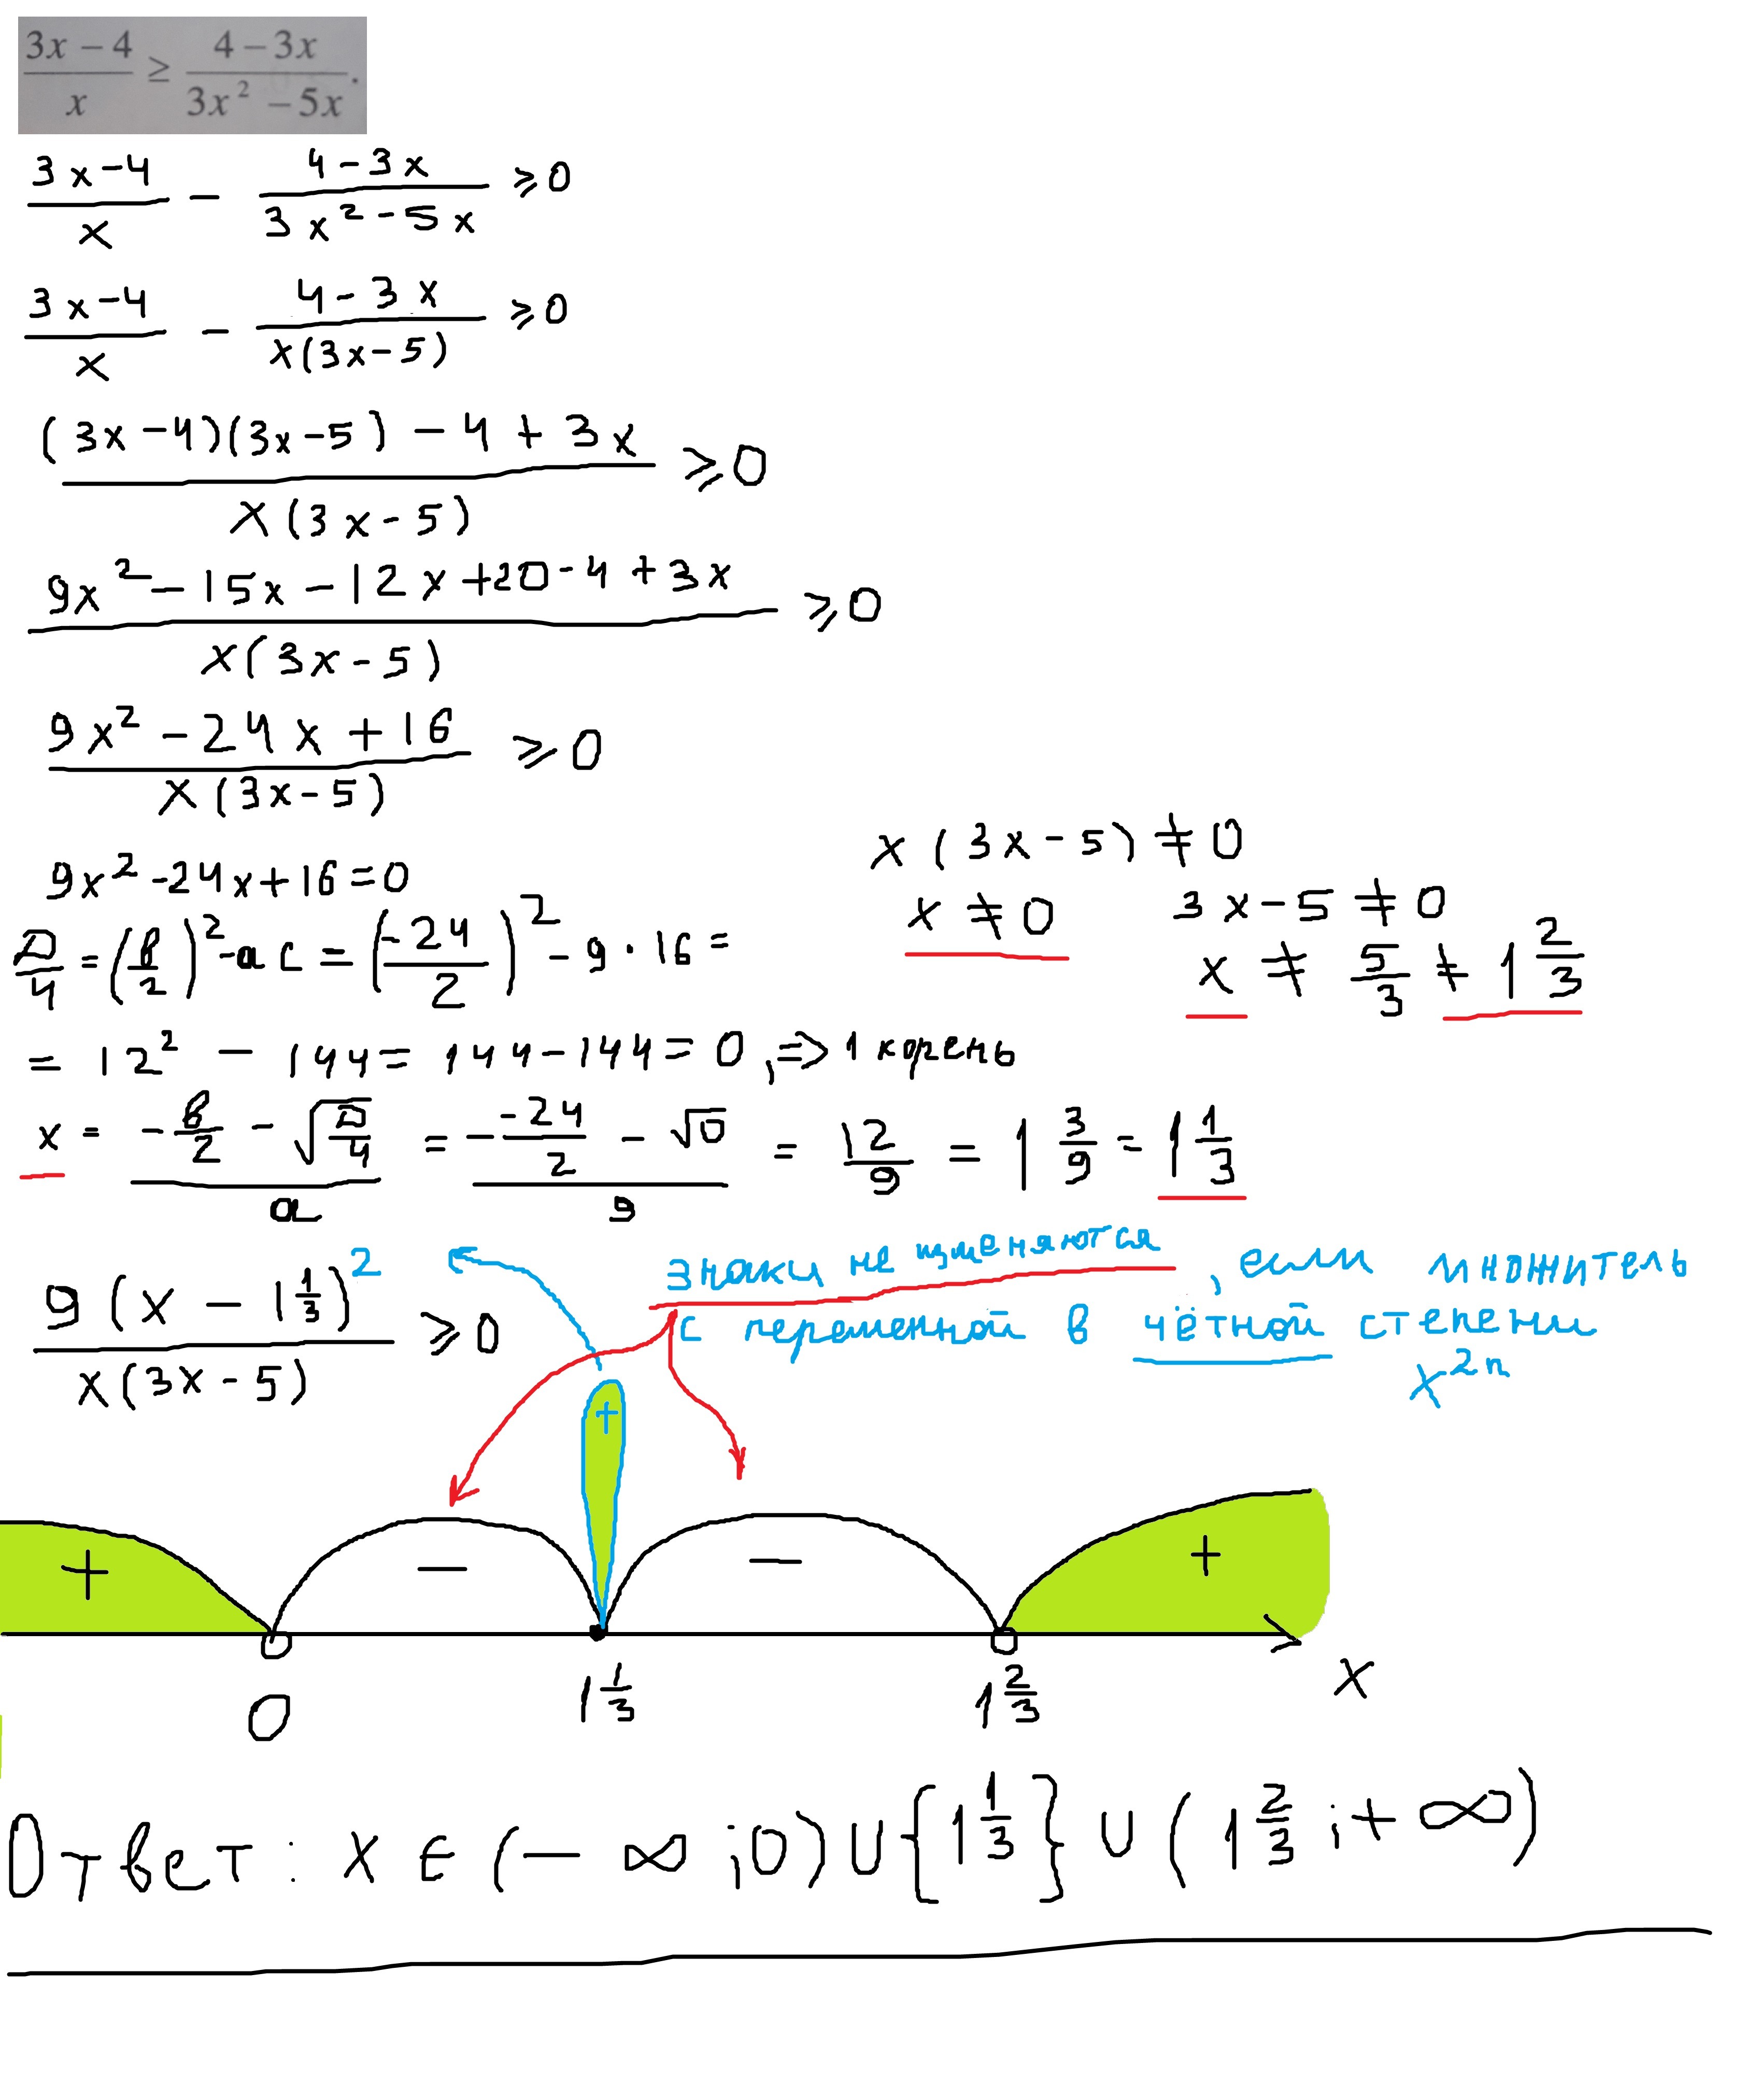 (3x − 4)/x ≥ (4 − 3x)/(3x² − 5x).
(3x−4)/x − (4−3x)/(3x²−5x) ⩾ 0
(3x−4)/x − (4−3x)/(x(3x−5)) ⩾ 0
((3x−4)(3x−5) − 4 + 3x)/(x(3x−5)) ⩾ 0
(9x² − 15x − 12x + 20 − 4 + 3x)/(x(3x−5)) ⩾ 0
(9x² − 24x + 16)/(x(3x−5)) ⩾ 0
9x² − 24x + 16 = 0
D/4 = (в/2)² − ac = (−24/2)² − 9 · 16 =
= 12² − 144 = 144 − 144 = 0, ⇒ 1 корень
x = (−в/2 − √(D/4))/a = (−−24/2 − √0)/9 = 12/9 = 1 3/9 = 1 1/3
x(3x−5) ≠ 0
x ≠ 0 3x−5 ≠ 0
x ≠ 5/3 ≠ 1 2/3
9(x − 1 1/3)²/(x(3x−5)) ⩾ 0
знаки не изменяются, если множитель
с переменной в чётной степени
x²ⁿ
+
+ − − +
0 1 1/3 1 2/3 x
Ответ: x ∈ (−∞;0) ∪ {1 1/3} ∪ (1 2/3;+∞)